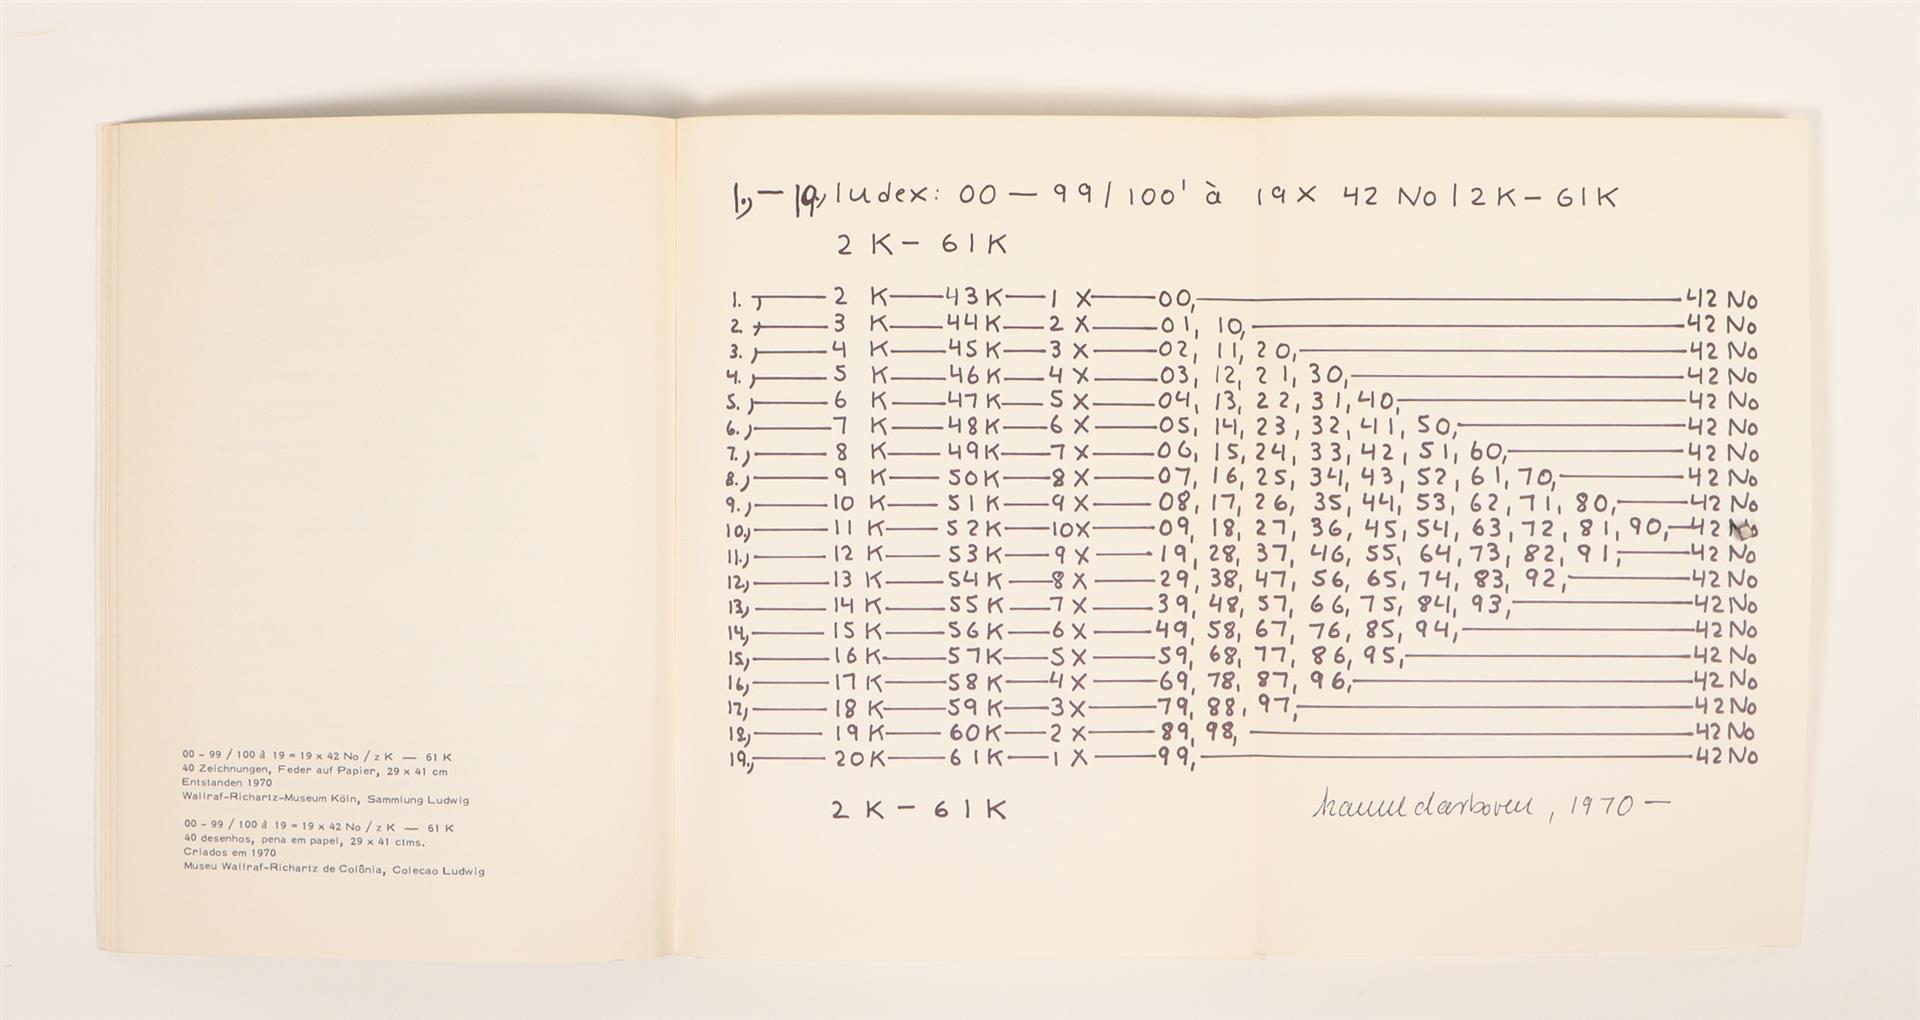 00 – 99 / 100 à 19 = 19 x 42 No / z K — 61 K
40 Zeichnungen, Feder auf Papier, 29 x 41 cm
Entstanden 1970
Wallraf-Richartz-Museum Köln, Sammlung Ludwig
00 – 99 / 100 à 19 = 19 x 42 No / z K — 61 K
40 desenhos, pena em papel, 29 x 41 ctms.
Criados em 1970
Museu Wallraf-Richartz de Colônia, Colecao Ludwig
1.,— 19., Index: 00 — 99 / 100' à 19 X 42 No / 2 K — 61 K
2 K — 61 K
1.,—2 K—43 K—1 X—00,—42 No
2.,—3 K—44 K—2 X—01, 10,—42 No
3.,—4 K—45 K—3 X—02, 11, 20,—42 No
4.,—5 K—46 K—4 X—03, 12, 21, 30,—42 No
5.,—6 K—47 K—5 X—04, 13, 22, 31, 40,—42 No
6.,—7 K—48 K—6 X—05, 14, 23, 32, 41, 50,—42 No
7.,—8 K—49 K—7 X—06, 15, 24, 33, 42, 51, 60,—42 No
8.,—9 K—50 K—8 X—07, 16, 25, 34, 43, 52, 61, 70,—42 No
9.,—10 K—51 K—9 X—08, 17, 26, 35, 44, 53, 62, 71, 80,—42 No
10.,—11 K—52 K—10 X—09, 18, 27, 36, 45, 54, 63, 72, 81, 90,—42 No
11.,—12 K—53 K—9 X—19, 28, 37, 46, 55, 64, 73, 82, 91,—42 No
12.,—13 K—54 K—8 X—29, 38, 47, 56, 65, 74, 83, 92,—42 No
13.,—14 K—55 K—7 X—39, 48, 57, 66, 75, 84, 93,—42 No
14.,—15 K—56 K—6 X—49, 58, 67, 76, 85, 94,—42 No
15.,—16 K—57 K—5 X—59, 68, 77, 86, 95,—42 No
16.,—17 K—58 K—4 X—69, 78, 87, 96,—42 No
17.,—18 K—59 K—3 X—79, 88, 97,—42 No
18.,—19 K—60 K—2 X—89, 98,—42 No
19.,—20 K—61 K—1 X—99,—42 No
2 K — 61 K
hanne darboven, 1970 —